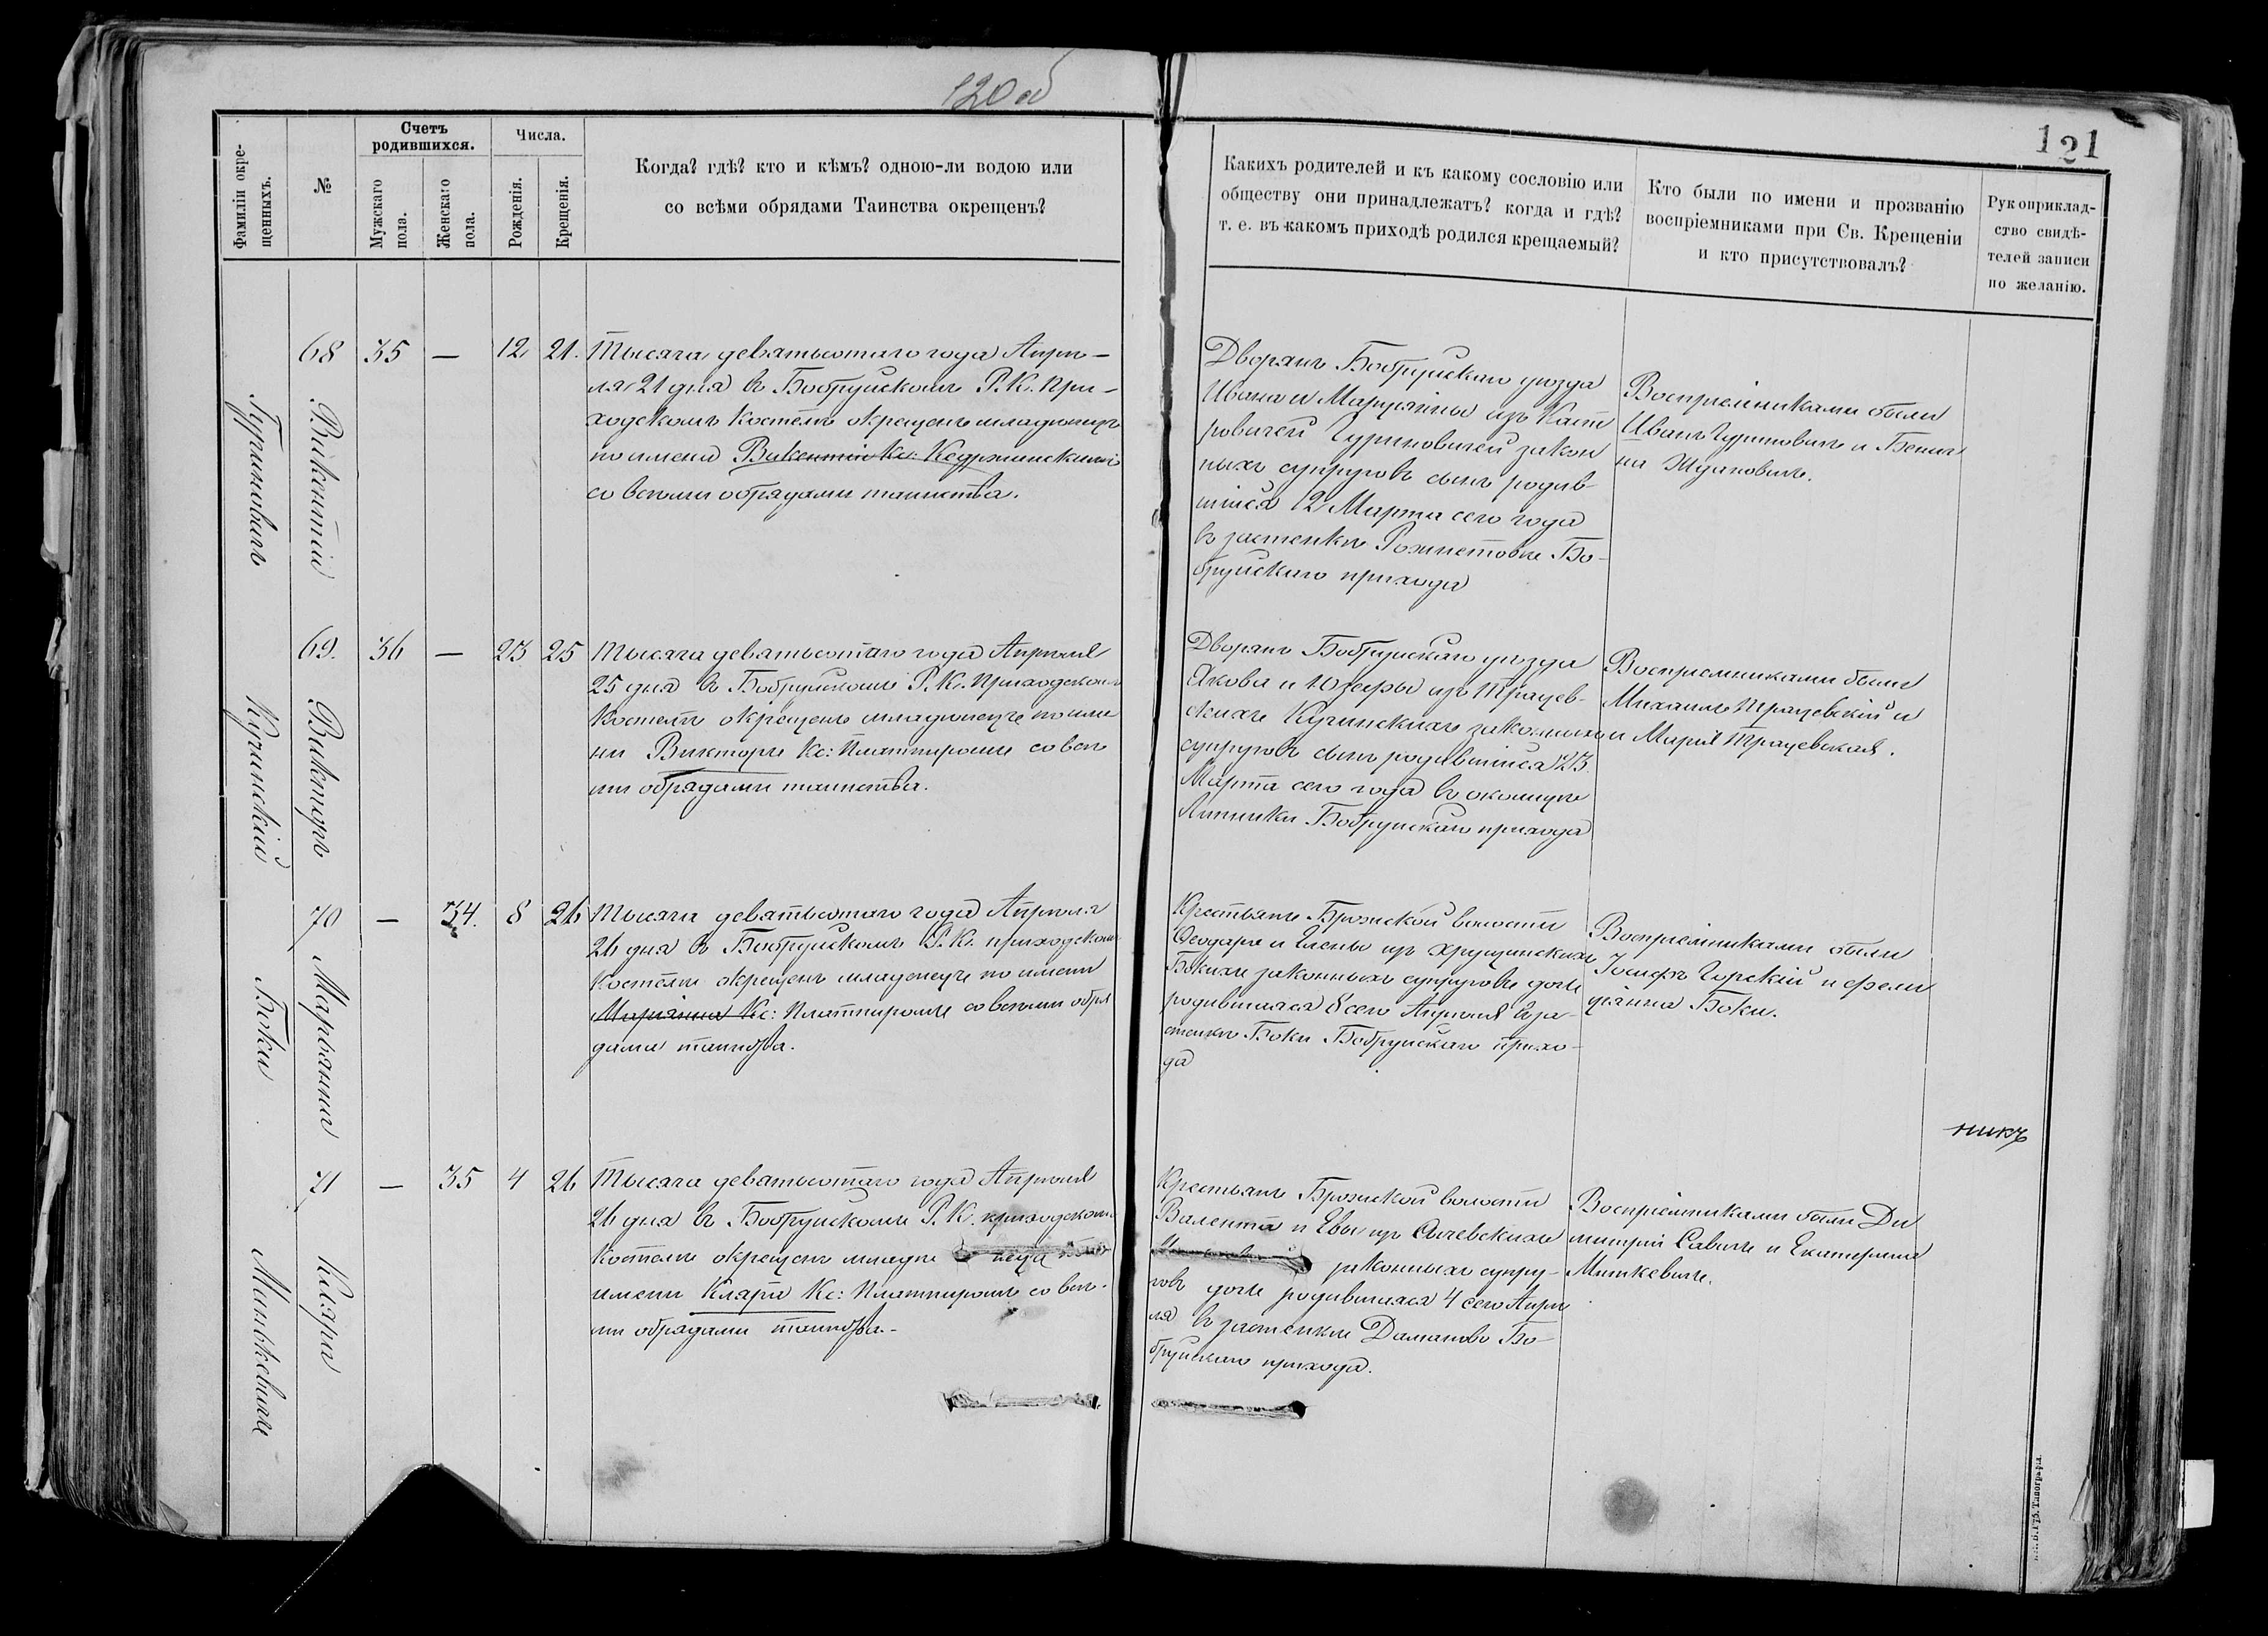 120 об
121
Фамиліи окре-
щенныхъ.
№
Счетъ
родившихся.
Мужскаго
пола.
Женскаго
пола.
Числа.
Рожденія.
Крещенія.
Когда? гдѣ? кто и кѣмъ? одною-ли водою или
со всѣми обрядами Таинства окрещенъ?
Какихъ родителей и къ какому сословію или
обществу они принадлежатъ? когда и гдѣ?
т. е. въ какомъ приходѣ родился крещаемый?
Кто были по имени и прозванію
воспріемниками при Св. Крещеніи
и кто присутствовалъ?
Рукоприклад-
ство свидѣ-
телей записи
по желанію.
Гуриновичъ
68
Викентій
35
—
12
21.
Тысяча девятьсотаго года Апрѣ-
ля 21 дня въ Бобруйскомъ Р. К. При-
ходскомъ Костелѣ окрещенъ младенецъ
по имени Викентій Кс: Кедржинскимъ
со всѣми обрядами таинства.
Дворянъ Бобруйскаго уѣзда
Ивана и Марцянны изъ
Гуриновичей закон
ныхъ супруговъ сынъ родив-
шійся 12 Марта сего года
въ застенкѣ Бо-
бруйскаго прихода
Воспріемниками были
Иванъ Гуриновичъ и Бениг
на Ждановичъ.
Кучинскій
69.
Викторъ
36
—
23
25
Тысяча девятьсотаго года Апрѣля
25 дня въ Бобруйскомъ Р. К. Приходскомъ
Костелѣ окрещенъ младенецъ по име
ни Викторъ Кс: Платпиромъ со всѣ
ми обрядами таинства.
Дворянъ Бобруйскаго уѣзда
Якова и Юзефы изъ Трацев-
скихъ Кучинскихъ законныхъ
супруговъ сынъ родившійся 23
Марта сего года въ околицѣ
Липники Бобруйскаго прихода
Воспріемниками были
Михаилъ Трацевскій и
и Марія Трацевская.
Боки
70
Марьянна
—
34.
8
26
Тысяча девятьсотаго года Апрѣля
26 дня въ Бобруйскомъ Р. К. приходскомъ
Костелѣ окрещенъ младенецъ по имени
Маріанна Кс: Платпиромъ со всѣми обря
дами таинства.
Крестьянъ Брожской волости
Ѳеодора и Елены изъ Хрущинскихъ
Бокихъ законныхъ супруговъ дочь
родившаяся 8 сего Апрѣля въ за-
стенкѣ Боки Бобруйскаго прихо-
да
Воспріемниками были
Іосифъ Горскій и Фели
ціянна Боки.
никъ
Мацкевичъ
71
Клара
—
35
4
26
Тысяча девятьсотаго года Апрѣля
26 дня въ Бобруйскомъ Р. К. приходскомъ
Костелѣ окрещенъ младе нецъ по
имени Клара Кс: Платпиромъ со всѣ-
ми обрядами таинства.-
Крестьянъ Брожской волости
Валента и Евы изъ Сычевскихъ
законныхъ супру-
говъ дочь родившаяся 4 сего Апрѣ
ля въ застенкѣ Даманово Бо-
бруйскаго прихода.
Воспріемниками были Ди
митрій Савичъ и Екатерина
Мицкевичъ.